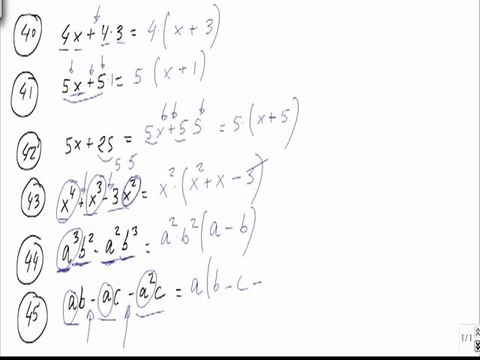 40 4x + 4·3 = 4·(x + 3)
41 5x + 5·1 = 5·(x + 1)
42 5x + 25 = 5x + 5·5 = 5·(x + 5)
5·5
43 x⁴ + x³ - 3x² = x²·(x² + x - 3)
44 a³b² - a²b³ = a²b²(a - b)
45 ab - ac - a²c = a(b - c -
1/1